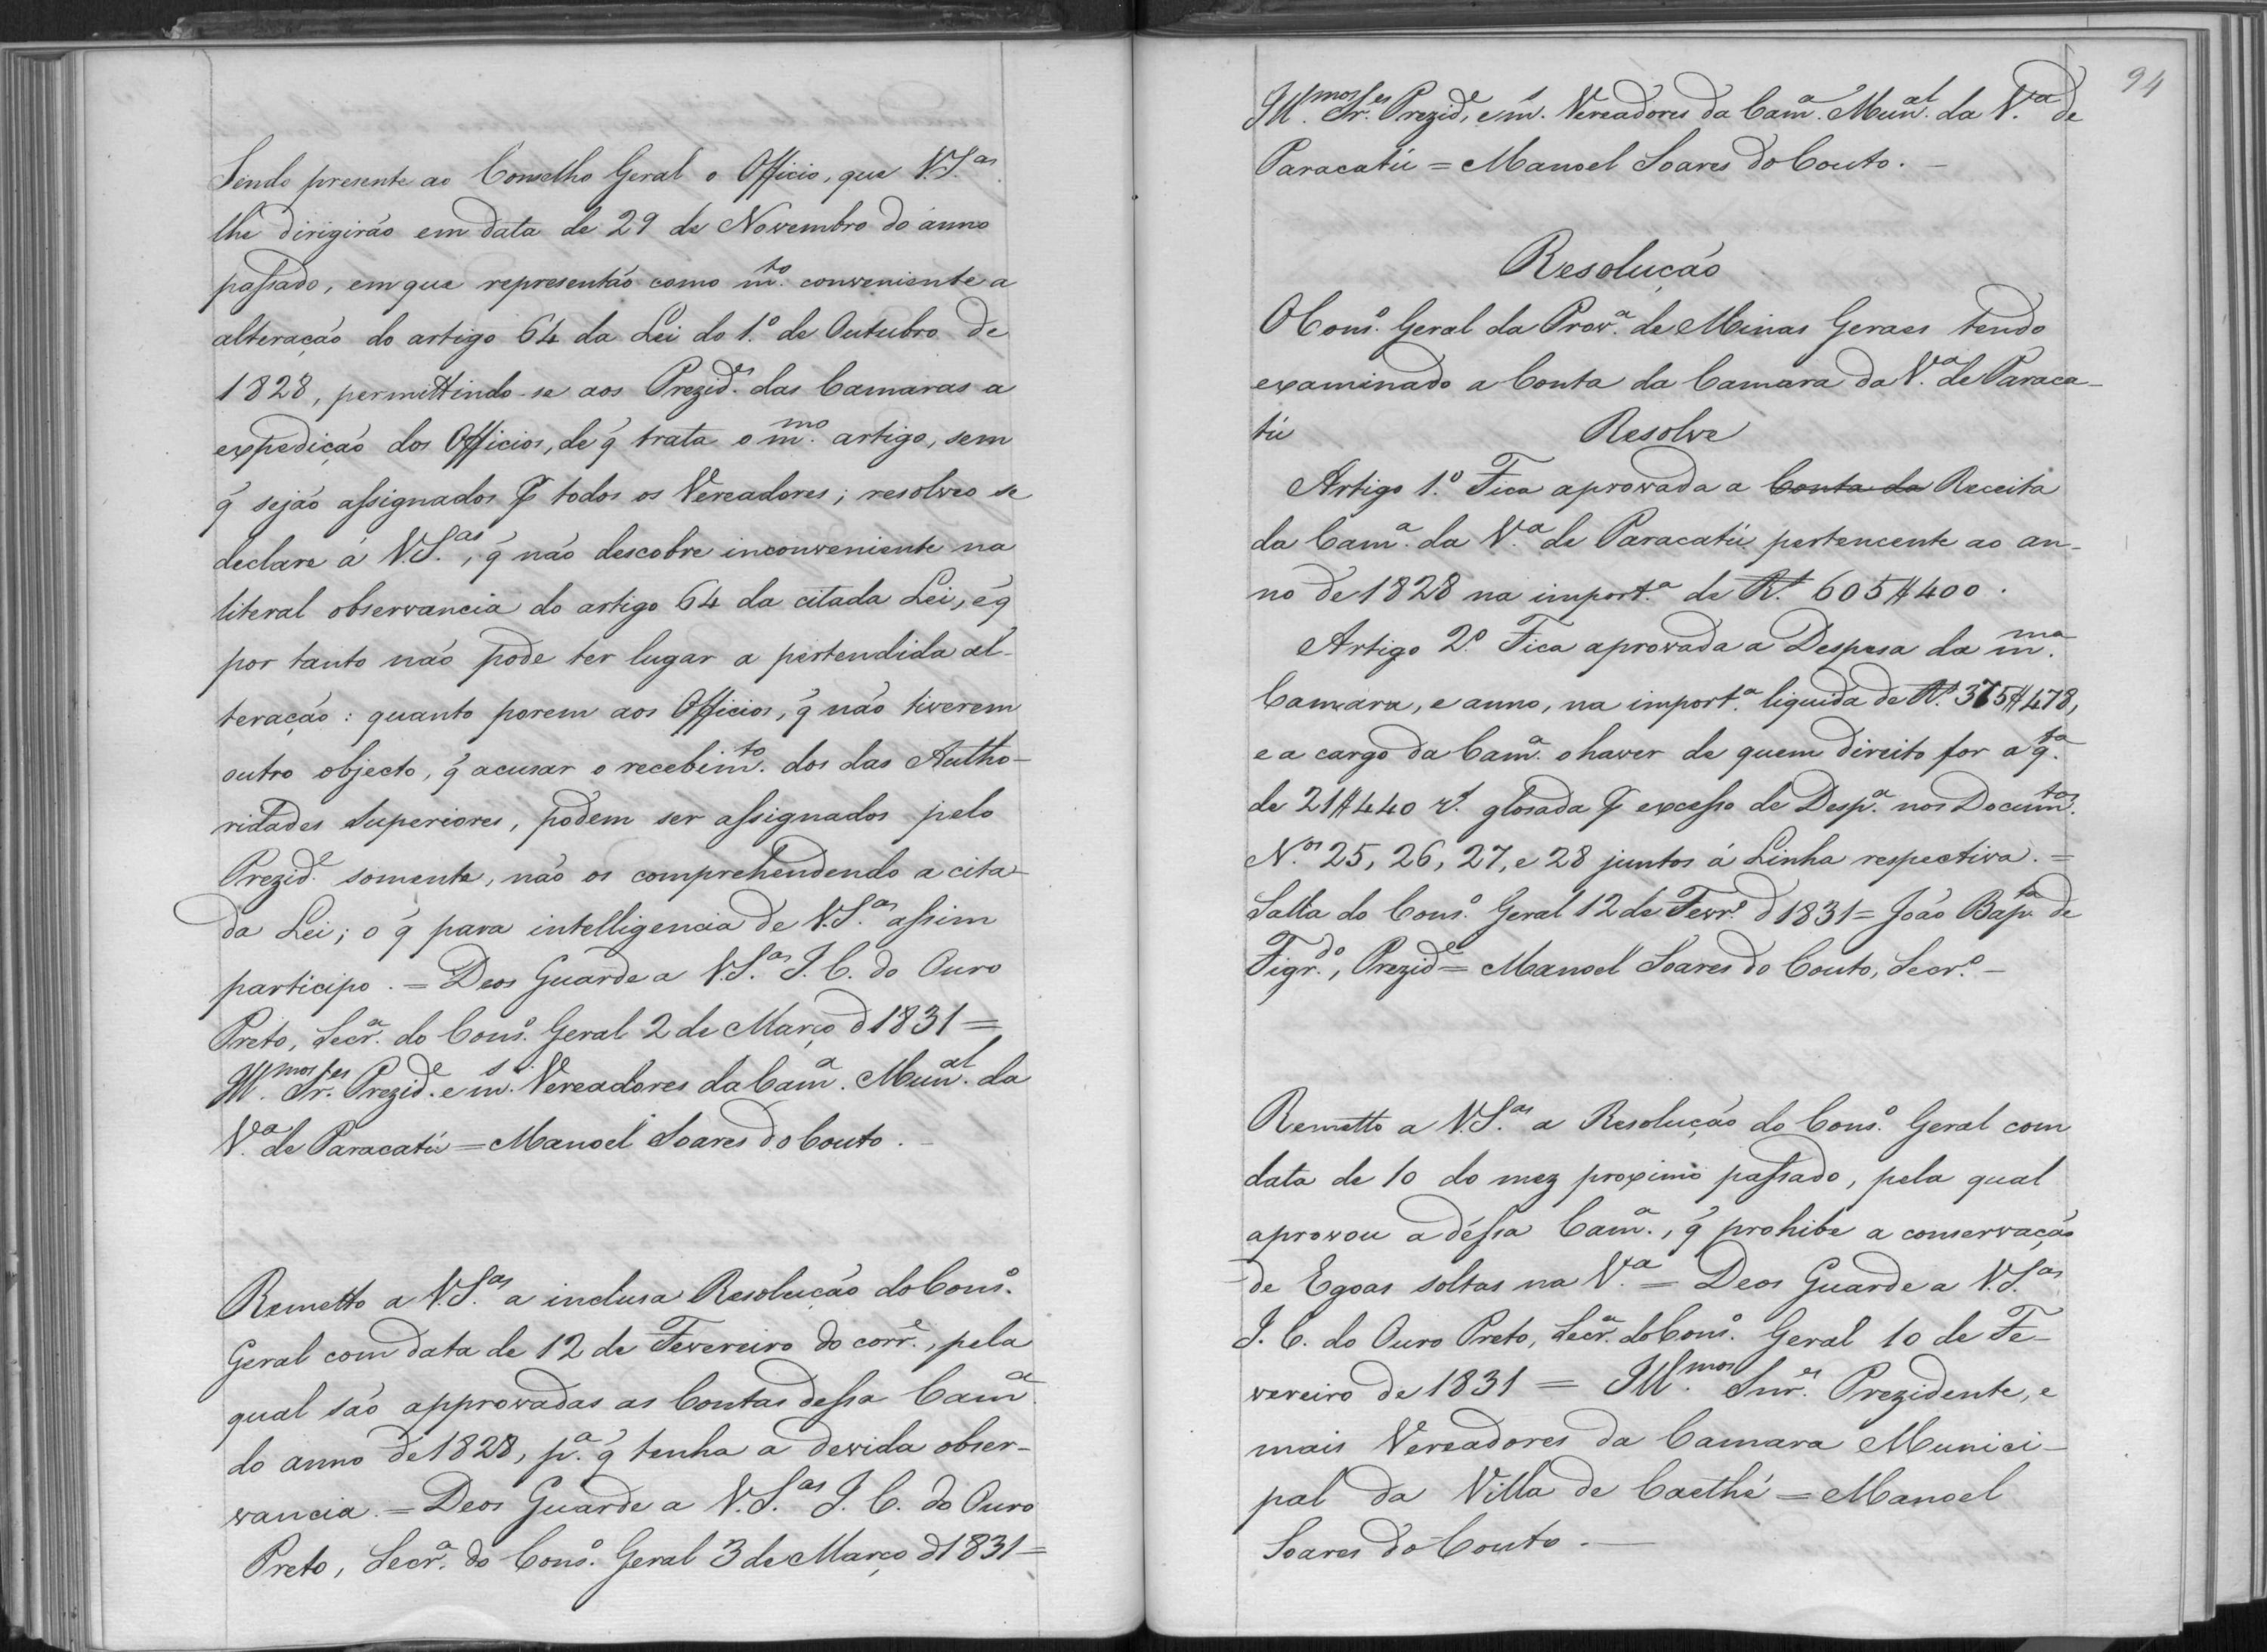 Sendo presente ao Conselho Geral o Officio, que V.S.as
lhe dirigirão em data de 29 de Novembro do anno
passado, em que representão como m.to conveniente a
alteração do artigo 64 da Lei do 1.º de Outubro de
1828, permittindo-se aos Prezid.es das Camaras a
expedição dos Officios, de q̃ trata o m.mo artigo, sem
q̃ sejão assignados p̱ todos os Vereadores; resolveo se
declare á V.S.as, q̃ não descobre inconveniente na
literal observancia do artigo 64 da citada Lei, e q̃
por tanto não pode ter lugar a pertendida al-
teração: quanto porem aos Officios, q̃ não tiverem
outro objecto, q̃ acusar o recebim.to dos das Autho-
ridades Superiores, podem ser assignados pelo
Prezid.e somente, não os comprehendendo a cita-
da Lei; o q̃ para intelligencia de V.S.as assim
participo. = Deos Guarde a V.S.as I. C. do Ouro
Preto, Secr.a do Cons.o Geral 2 de Março d 1831 =
Ill.mos Sr.es Prezid.e e m.s Vereadores da Cam.a Mun.al da
V.a de Paracatú = Manoel Soares do Couto. -
Remetto a V.S.as a inclusa Resolução do Cons.o
Geral com data de 12 de Fevereiro do corr.e, pela
qual são approvadas as Contas dessa Cam.a
do anno de 1828, p.a q̃ tenha a devida obser-
vancia. = Deos Guarde a V.S.as I. C. do Ouro
Preto, Secr.a do Cons.o Geral 3 de Março d 1831 =
94
Ill.mos Sr.es Prezid.e, e m.s Vereadores da Cam.a Mun.al da V.a de
Paracatú = Manoel Soares do Couto. -
Resolução
O Cons.o Geral da Prov.a de Minas Geraes tendo
examinado a Conta da Camara da V.a de Paraca-
tú Resolve
Artigo 1.º Fica aprovada a Conta da Receita
da Cam.a da V.a de Paracatú pertencente ao an-
no de 1828 na import.a de R.s 605$400.
Artigo 2.º Fica aprovada a Despesa da m.ma
Camara, e anno, na import.a liquida de R.s 375$478,
e a cargo da Cam.a o haver de quem direito for a q.ta
de 21$440 r.s glosada p̱ excesso de Desp.a nos Docum.tos
N.os 25, 26, 27, e 28 juntos á Linha respectiva. =
Salla do Cons.o Geral 12 de Fevr.o d 1831 = João Bap.ta de
Figr.do, Prezid.e = Manoel Soares do Couto, Secr.o -
Remetto a V.S.as a Resolução do Cons.o Geral com
data de 10 do mez proximo passado, pela qual
aprovou a déssa Cam.a, q̃ prohibe a conservação
de Egoas soltas na V.a = Deos Guarde a V.S.as
I. C. do Ouro Preto, Secr.a do Cons.o Geral 10 de Fe-
vereiro de 1831 = Ill.mos Snr.es Prezidente, e
mais Vereadores da Camara Munici-
pal da Villa de Caethé = Manoel
Soares do Couto. -